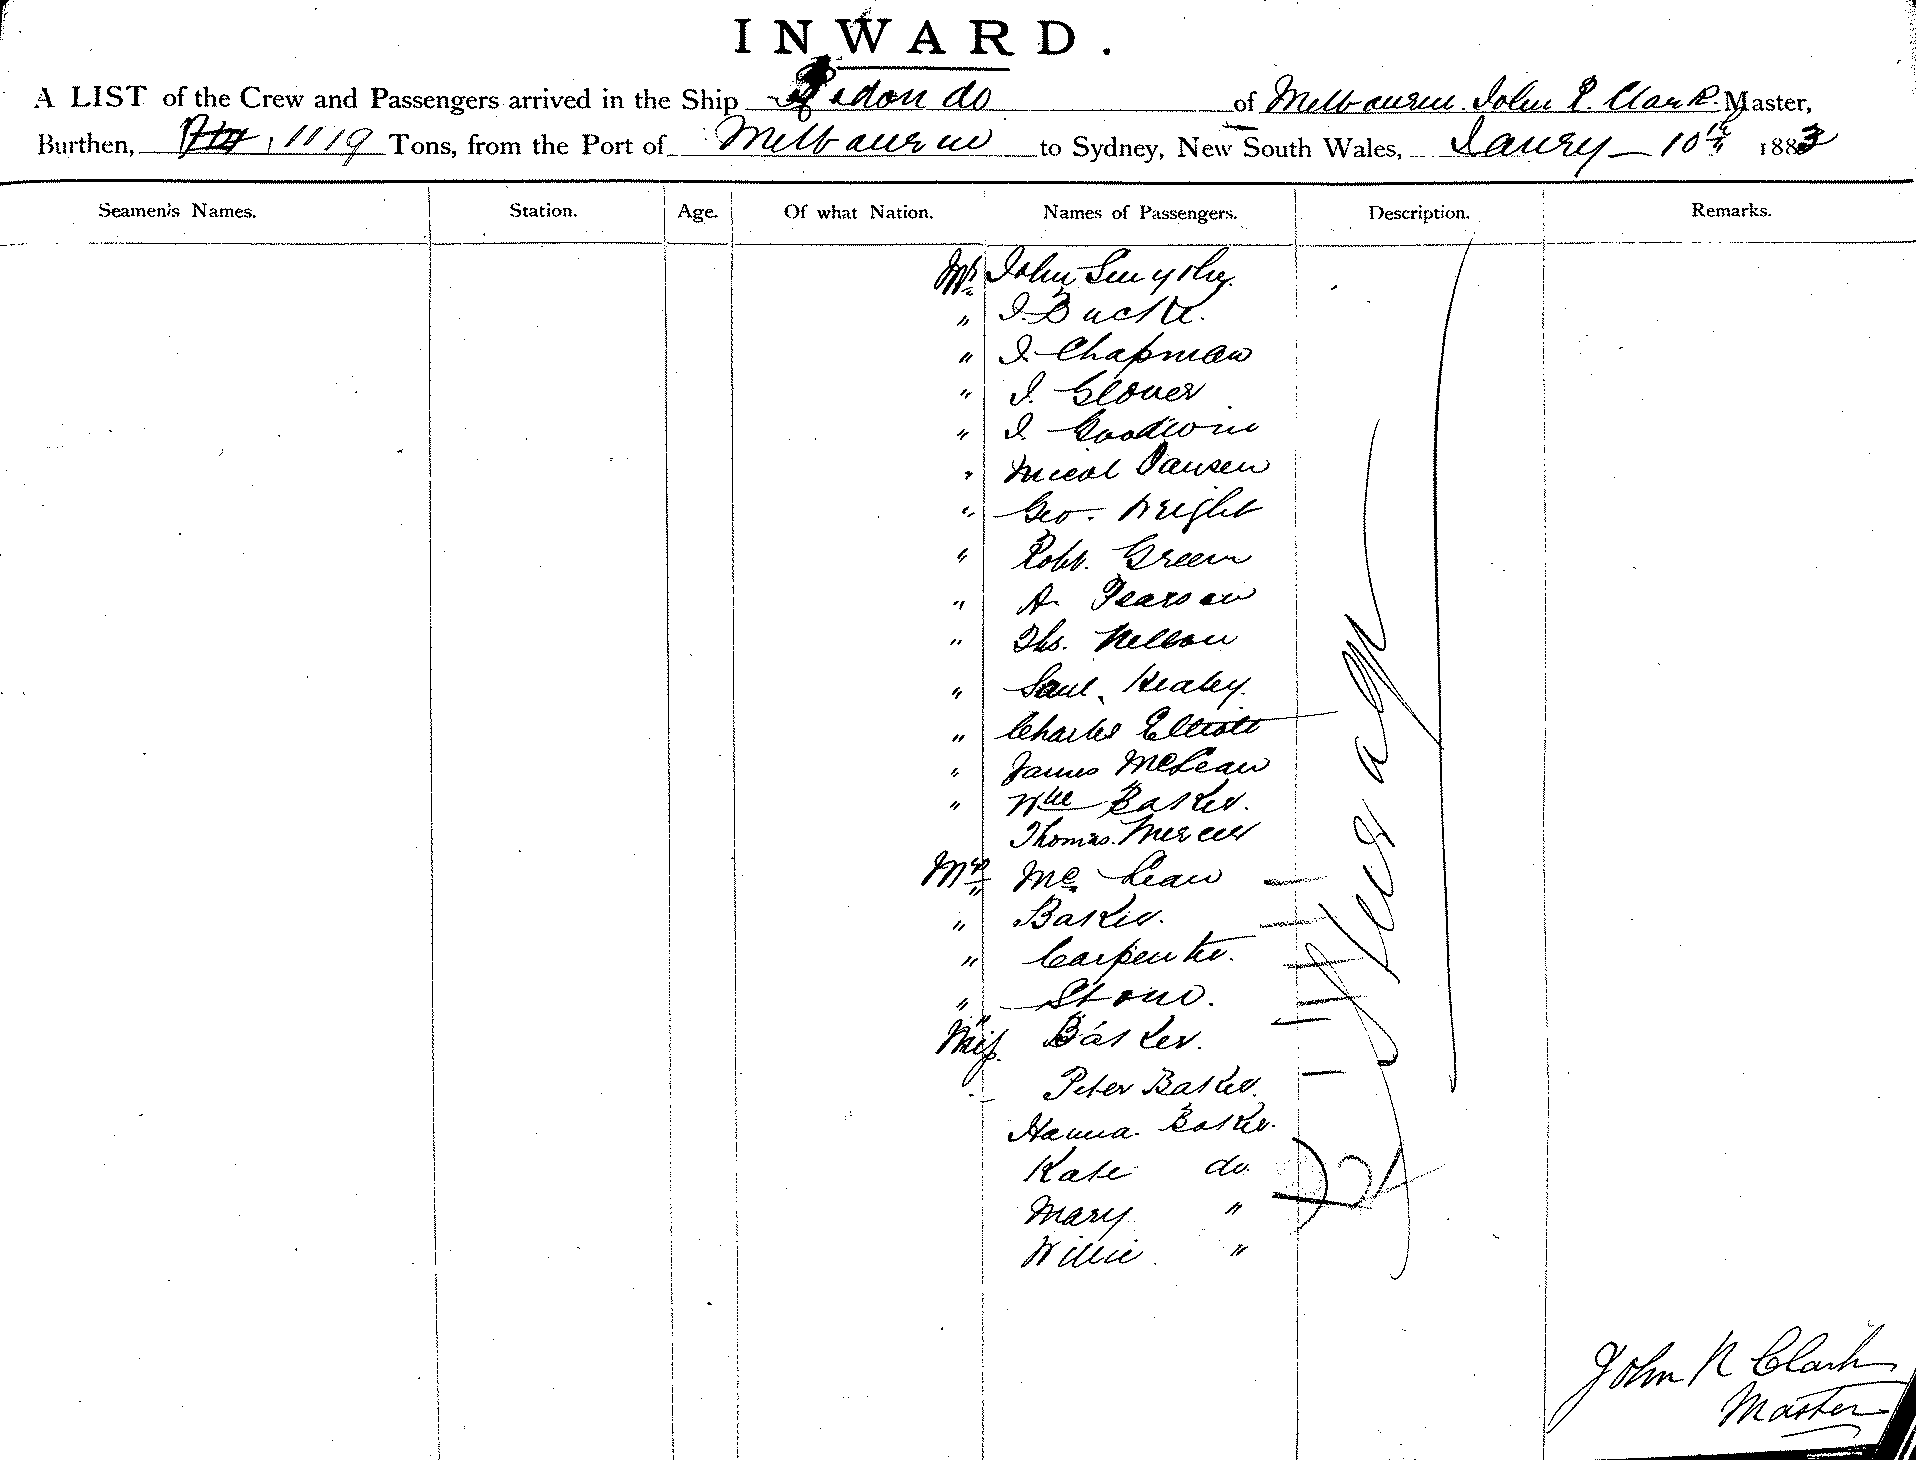 INWARD.
A LIST of the Crew and Passengers arrived in the Ship Redondo of Melbourne John R. Clark Master,
Burthen, 1119 Tons, from the Port of Melbourne to Sydney, New South Wales, Janry 10th 1883
Seamen's Names. Station. Age. Of what Nation. Names of Passengers. Description. Remarks.
Mr. John
" J. Bucke.
" J. Chapman
" J. Glover
" J. Goodwin
" Nicol Jansen
" Geo. Wright
" Robt. Green
" A. Pearson
" Ths. Nelson
" Saul. Healey.
" Charles Elliott
" James McLean
" Wm Baker.
Thomas Mercer
Mrs Mc Lean
" Baker.
" Carpenter.
" Stone.
Miss Baker.
Peter Baker.
Hanna Baker.
Kate do
Mary "
Willie "
Steerage
John R Clark
Master